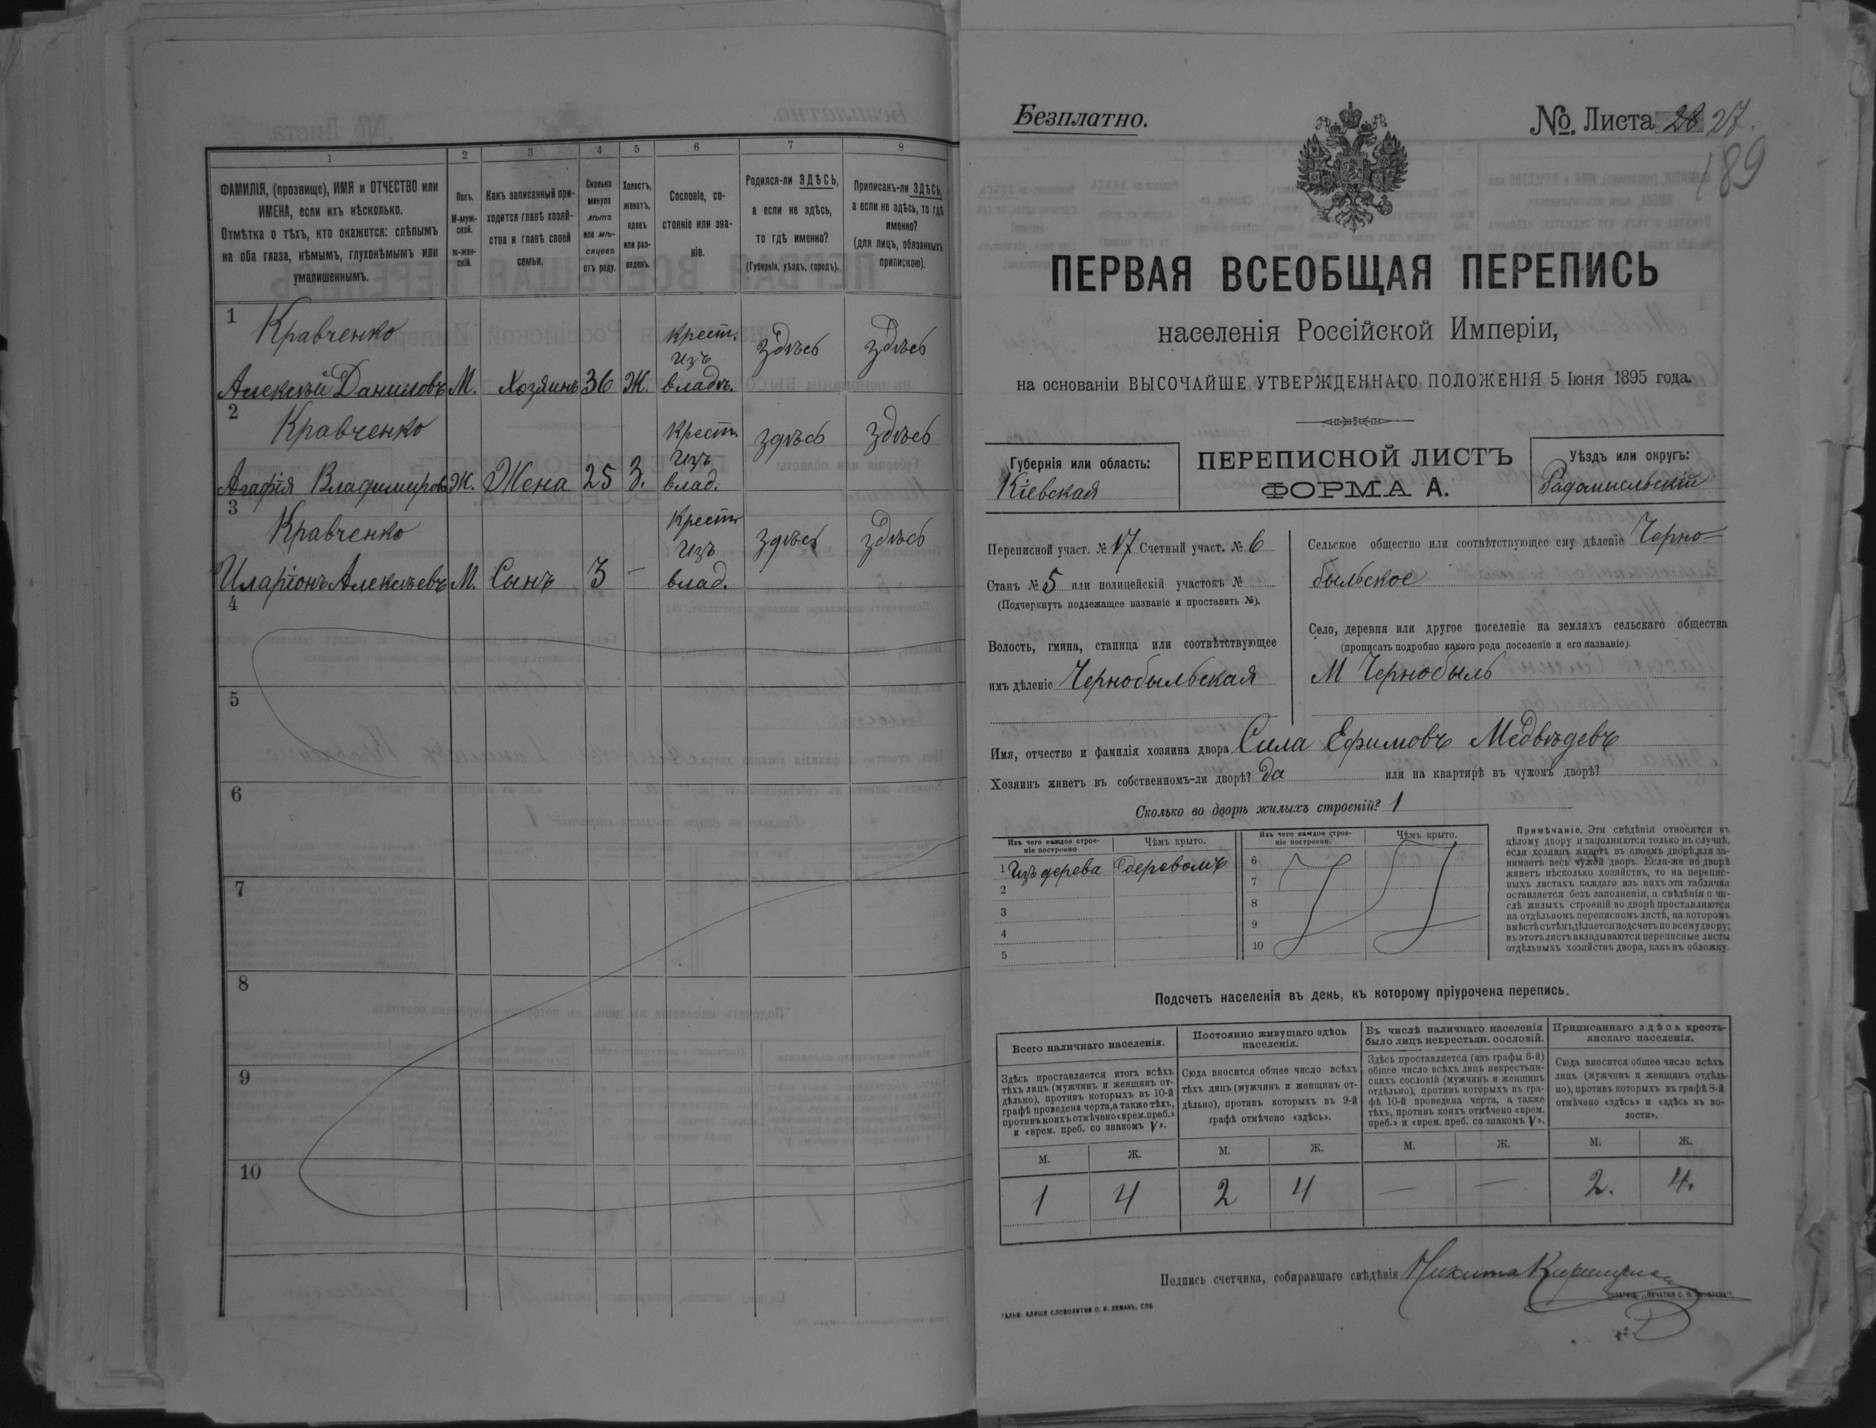 1 2 3 4 5 6 7 8
ФАМИЛІЯ, (прозвище), ИМЯ и ОТЧЕСТВО или
ИМЕНА, если ихъ нѣсколько.
Отмѣтка о тѣхъ, кто окажется: слѣпымъ
на оба глаза, нѣмымъ, глухонѣмымъ или
умалишеннымъ.
Полъ.
М-муж-
ской.
ж-жен-
скій.
Какъ записанный при-
ходится главѣ хозяй-
ства и главѣ своей
семьи.
Сколько
минуло
лѣтъ
или мѣ-
сяцевъ
отъ роду.
Холостъ,
женатъ,
вдовъ
или раз-
веденъ.
Сословіе, со-
стояніе или зва-
ніе.
Родился-ли ЗДѢСЬ,
а если не здѣсь,
то гдѣ именно?
(Губернія, уѣздъ, городъ).
Приписанъ-ли ЗДѢСЬ,
а если не здѣсь, то гдѣ
именно?
(для лицъ, обязанныхъ
припискою).
1 Кравченко
Алексѣй Даниловъ М. Хозяинъ 36 Ж. Крест. изъ владѣ. здѣсь здѣсь
2 Кравченко
Агафія Владимирова Ж. Жена 25 З. Крест. изъ влад. здѣсь здѣсь
3 Кравченко
Иларіонъ Алексѣевъ М. Сынъ 3 — Крест. изъ влад. здѣсь здѣсь
4
5
6
7
8
9
10
Безплатно.
№. Листа 28 27.
189
ПЕРВАЯ ВСЕОБЩАЯ ПЕРЕПИСЬ
населенія Россійской Имперіи,
на основаніи ВЫСОЧАЙШЕ УТВЕРЖДЕННАГО ПОЛОЖЕНІЯ 5 Іюня 1895 года.
Губернія или область:
Кіевская
ПЕРЕПИСНОЙ ЛИСТЪ
ФОРМА А.
Уѣздъ или округъ:
Радомысльскій
Переписной участ. № 17 Счетный участ. № 6
Станъ № 5 или полицейскій участокъ №
(Подчеркнуть подлежащее названіе и проставить №).
Волость, гмина, станица или соотвѣтствующее
имъ дѣленіе Чернобыльская
Сельское общество или соотвѣтствующее ему дѣленіе Черно-
быльское
Село, деревня или другое поселеніе на земляхъ сельскаго общества
(прописать подробно какого рода поселеніе и его названіе)
М Чернобыль
Имя, отчество и фамилія хозяина двора Сила Ефимовъ Медвѣдевъ
Хозяинъ живетъ въ собственномъ-ли дворѣ? да или на квартирѣ въ чужомъ дворѣ?
Сколько во дворѣ жилыхъ строеній? 1
Изъ чего каждое строе-
ніе построено
Чѣмъ крыто.
Изъ чего каждое строе-
ніе построено.
Чѣмъ крыто.
1 Изъ дерева деревомъ
2
3
4
5
6
7
8
9
10
Примѣчаніе. Эти свѣдѣнія относятся къ
цѣлому двору и заполняются только въ случаѣ,
если хозяинъ живетъ въ своемъ дворѣ или за-
нимаетъ весь чужой дворъ. Если-же во дворѣ
живетъ нѣсколько хозяйствъ, то на перепис-
ныхъ листахъ каждаго изъ нихъ эта табличка
оставляется безъ заполненія, а свѣдѣнія о чи-
слѣ жилыхъ строеній во дворѣ проставляются
на отдѣльномъ переписномъ листѣ, на которомъ
вмѣстѣ съ тѣмъ дѣлается подсчетъ по всему двору;
въ этотъ листъ вкладываются переписные листы
отдѣльныхъ хозяйствъ двора, какъ въ обложку.
Подсчетъ населенія въ день, къ которому пріурочена перепись.
Всего наличнаго населенія.
Здѣсь проставляется итогъ всѣхъ
тѣхъ лицъ (мужчинъ и женщинъ от-
дѣльно), противъ которыхъ въ 10-й
графѣ проведена черта, а также тѣхъ,
противъ коихъ отмѣчено «врем. преб.»
и «врем. преб. со знакомъ V».
Постоянно живущаго здѣсь
населенія.
Сюда вносится общее число всѣхъ
тѣхъ лицъ (мужчинъ и женщинъ от-
дѣльно), противъ которыхъ въ 9-й
графѣ отмѣчено «здѣсь».
Въ числѣ наличнаго населенія
было лицъ некрестьян. сословій.
Здѣсь проставляется (изъ графы 6-й)
общее число всѣхъ лицъ некрестьян-
скихъ сословій (мужчинъ и женщинъ
отдѣльно), противъ которыхъ въ гра-
фѣ 10-й проведена черта, а также
тѣхъ, противъ коихъ отмѣчено «врем.
преб.» и «врем. преб. со знакомъ V».
Приписаннаго здѣсь кресть-
янскаго населенія.
Сюда вносится общее число всѣхъ
лицъ (мужчинъ и женщинъ отдѣль-
но), противъ которыхъ въ графѣ 8-й
отмѣчено «здѣсь» и «здѣсь въ во-
лости».
М. Ж. М. Ж. М. Ж. М. Ж.
1 4 2 4 — — 2. 4.
Подпись счетчика, собиравшаго свѣдѣнія Никита
ГАЛЬВ. КЛИШЕ СЛОВОЛИТНИ О. И. ЛЕМАНЪ, СПБ